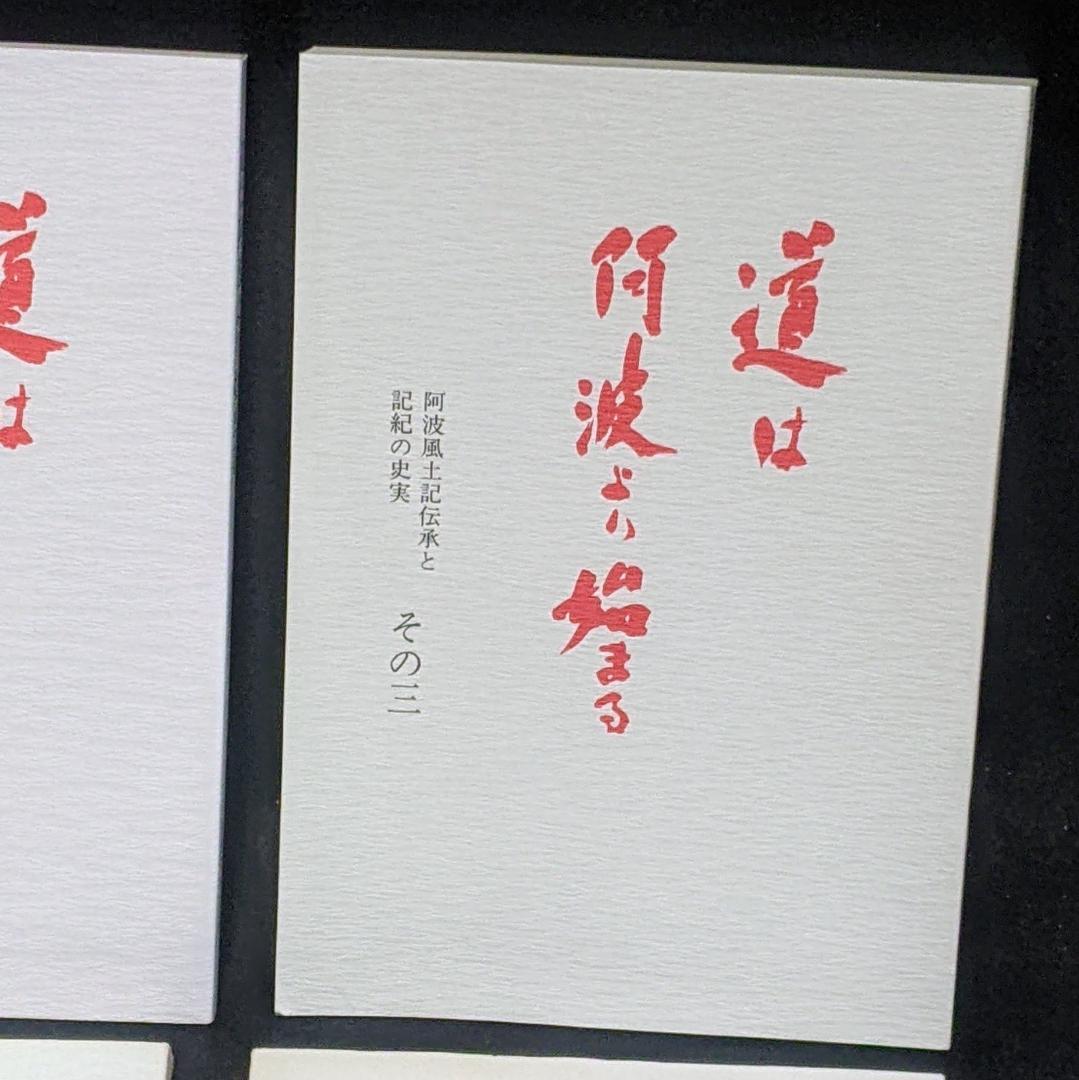 道は
阿波より始まる
阿波風土記伝承と
記紀の史実
その三
道は